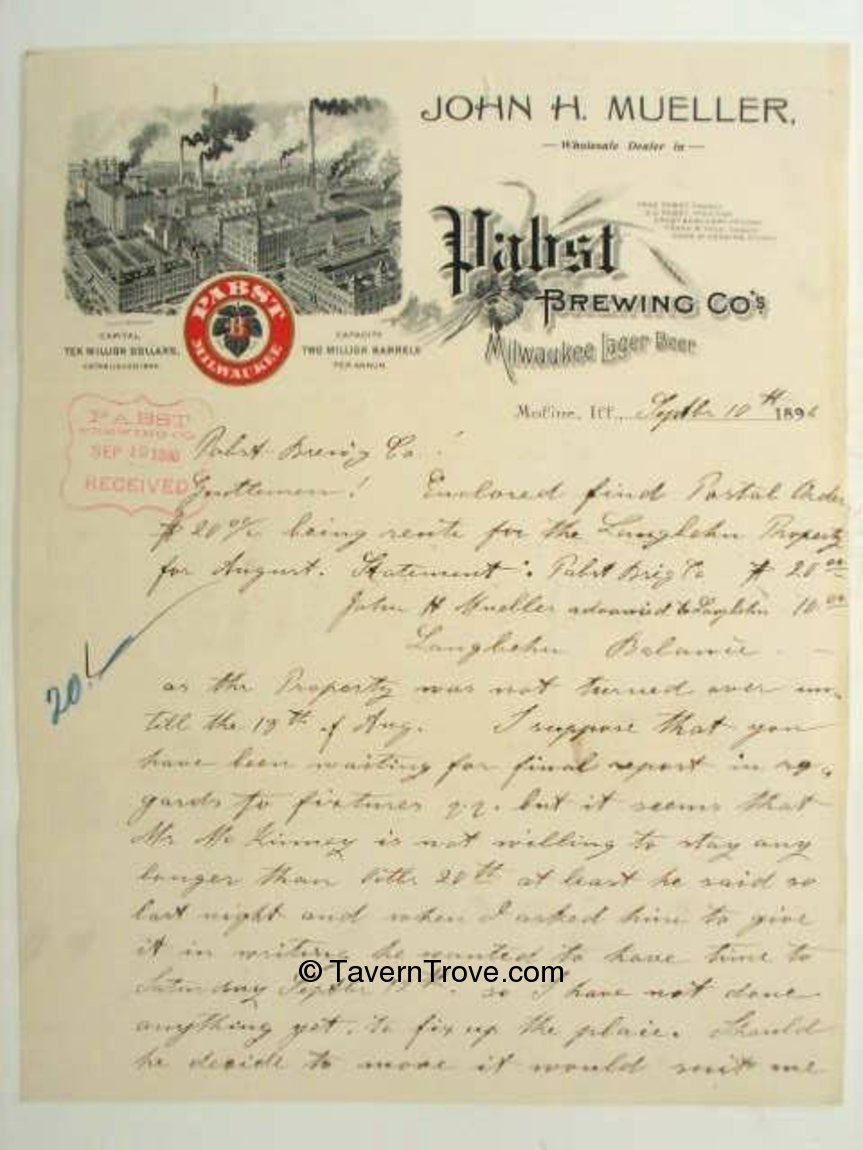 JOHN H. MUELLER,
Wholesale Dealer in
Pabst
BREWING CO'S
Milwaukee Lager Beer
CAPITAL
TEN MILLION DOLLARS,
CAPACITY
TWO MILLION BARRELS
PER ANNUM.
PABST
MILWAUKEE
B
Moline, Ill., Septbr 10th 189
PABST
BREWING CO.
SEP
RECEIVED
Pabst Brewig Co!
Gentlemen! Enclosed find Postal Order
$ 20 00/ being rente for the Langbehn Property
for August. Statement: Pabst Brig Co $ 20 00
John H Mueller advanced to Langbehn 10 00
Langbehn Balance
20
as the Property was not turned over un-
till the 18th of Aug. I suppose that you
have been waiting for final report in re-
gards to fixtures but it seems that
Mr McKinney is not willing to stay any
longer than 20th at least he said so
last night and when I asked him to give
it in writing he wanted to have time to
Saturday Septbr so I have not done
anything yet, to fix up the place. Should
he decide to move it would suit me
© TavernTrove.com